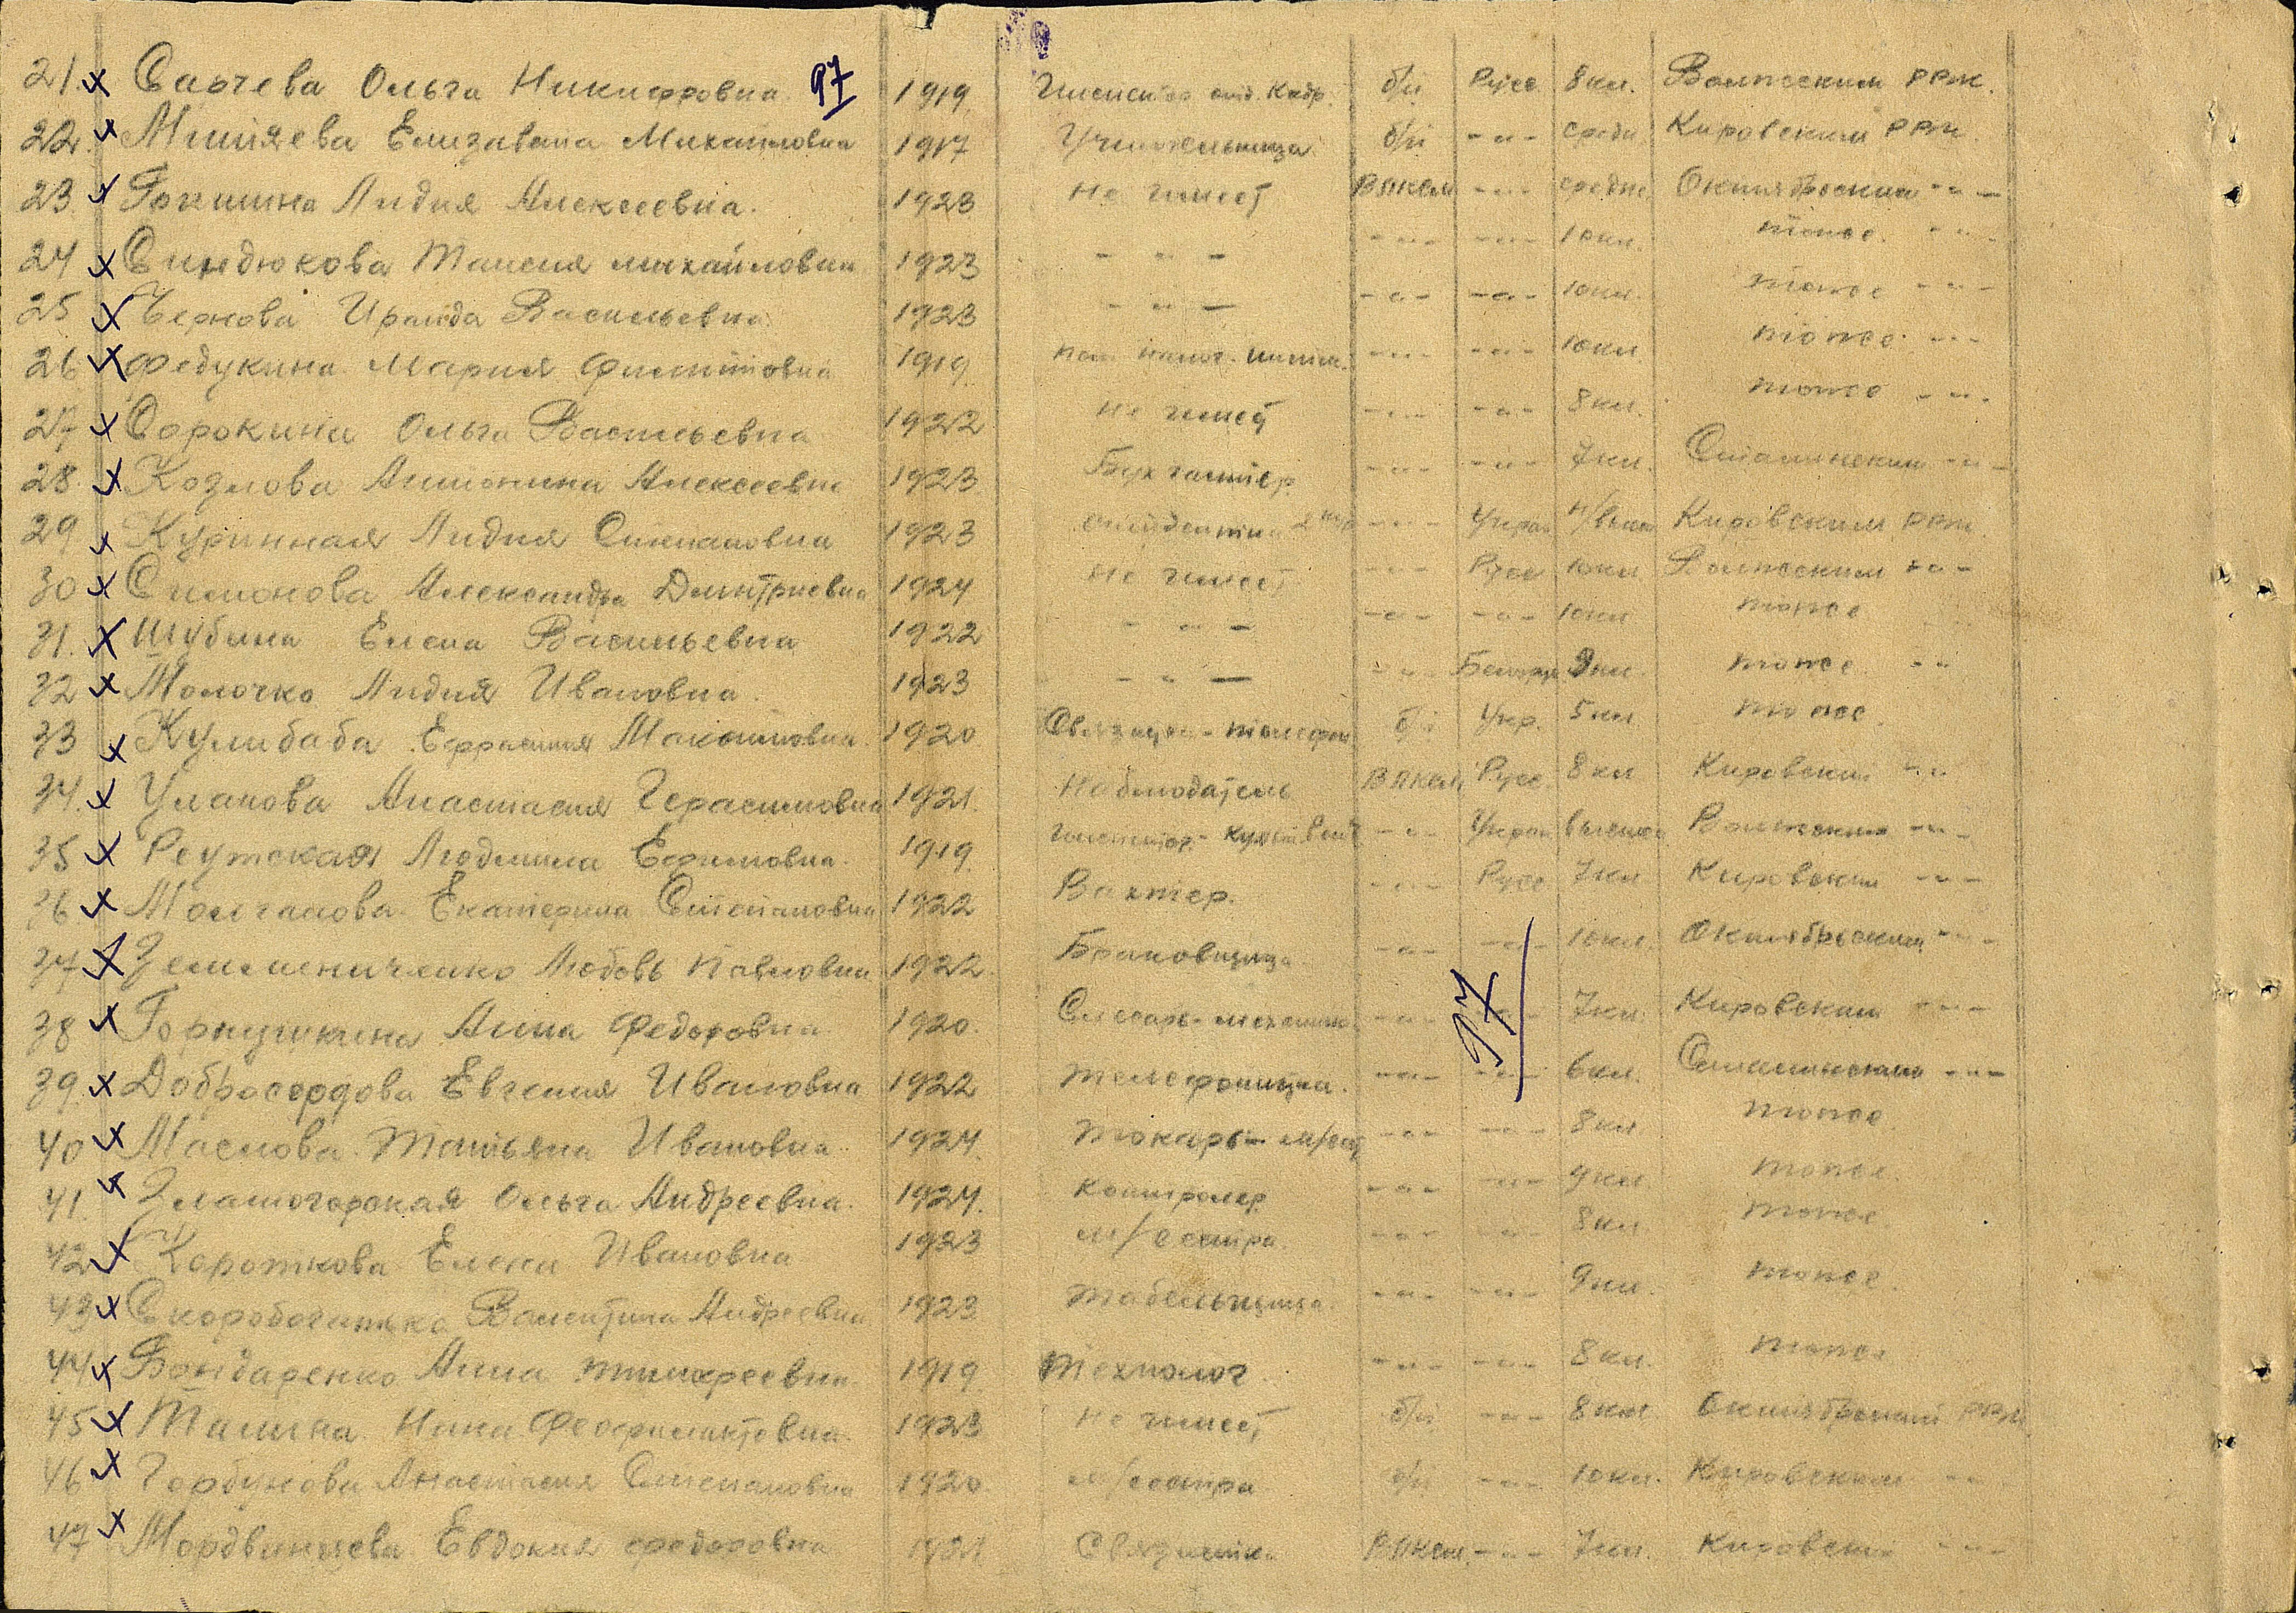 21. х Сычева Ольга Никифоровна 97 1919 отд. Кадр. б/п Русс 8 кл. Волжским РВК.
22. х Миняева Елизавета Михайловна 1917 Учительница б/п -"- средн Кировским РВК
23. х Лидия Алексеевна. 1923 не имеет ВЛКСМ -"- средне Октябрьским -"-
24 х Синдюкова Таисия михайловна 1923 - " - -"- -"- 10 кл. тоже -"-
25 х Чернова Ираида Васильевна 1923 - " - -"- -"- 10 кл. тоже -"-
26 х Федукина Мария Филипповна 1919 -"- -"- 10 кл тоже -"-
27 х Сорокина Ольга Васильевна 1922 не имеет -"- -"- 8 кл. тоже -"-
28. х Козлова Антонина Алексеевна 1923 Бухгалтер -"- -"- 7 кл. Сталинским -"-
29 х Куринная Лидия Степановна 1923 студентка 2 кур -"- Украи н/высш Кировским РВК
30 х Симонова Александра Дмитриевна 1924 не имеет -"- Русс 10 кл Волжским -"-
31. х Шубина Елена Васильевна 1922 - " - -"- -"- 10 кл тоже
32 х Молочко Лидия Ивановна. 1923 - " - -"- Белорус 9 кл тоже -"-
33 х Кулибаба Ефросиния Максимовна. 1920 Связист - телефон б/п Укр. 5 кл тоже
34. х Уланова Анастасия Герасимовна 1921. Наблюдатель ВЛКСМ Русс 8 кл Кировским -"-
35 х Реутская Людмила Ефимовна. 1919. -"- Украи высшее Волжским -"-
36 х Молчанова Екатерина Степановна 1922 Вахтер. -"- Русс 7 кл Кировским -"-
37 х Любовь Павловна 1922. Браковщица -"- -"- 10 кл. Октябрьским -"-
38 х Горкушкина Анна Федоровна 1920. Слесарь-механик -"- -"- 7 кл. Кировским -"-
97
39. х Добросердова Евгения Ивановна 1922 телефонистка. -"- -"- 6 кл. Сталинским -"-
40 х Маслова Татьяна Ивановна 1924. токарь- м/сес -"- -"- 8 кл тоже
41. х Златогорская Ольга Андреевна. 1924. контролер -"- -"- 9 кл. тоже.
42 х Короткова Елена Ивановна 1923 м/сестра. -"- -"- 8 кл. тоже.
43 х Скоробогатько Валентина Андреевна 1923 табельщица. -"- -"- 9 кл. тоже.
44 х Бондаренко Анна тимофеевна. 1919. Технолог -"- -"- 8 кл. тоже
45 х Талина Нина Феофилактовна. 1923 не имеет б/п -"- 8 кл Октябрьский РВК
46 х Горбунова Анастасия Степановна 1920. м/сестра б/п -"- 10 кл. Кировским -"-
47 х Мордвинцева Евдокия федоровна 1921 Связистка ВЛКСМ. -"- 7 кл. Кировским -"-